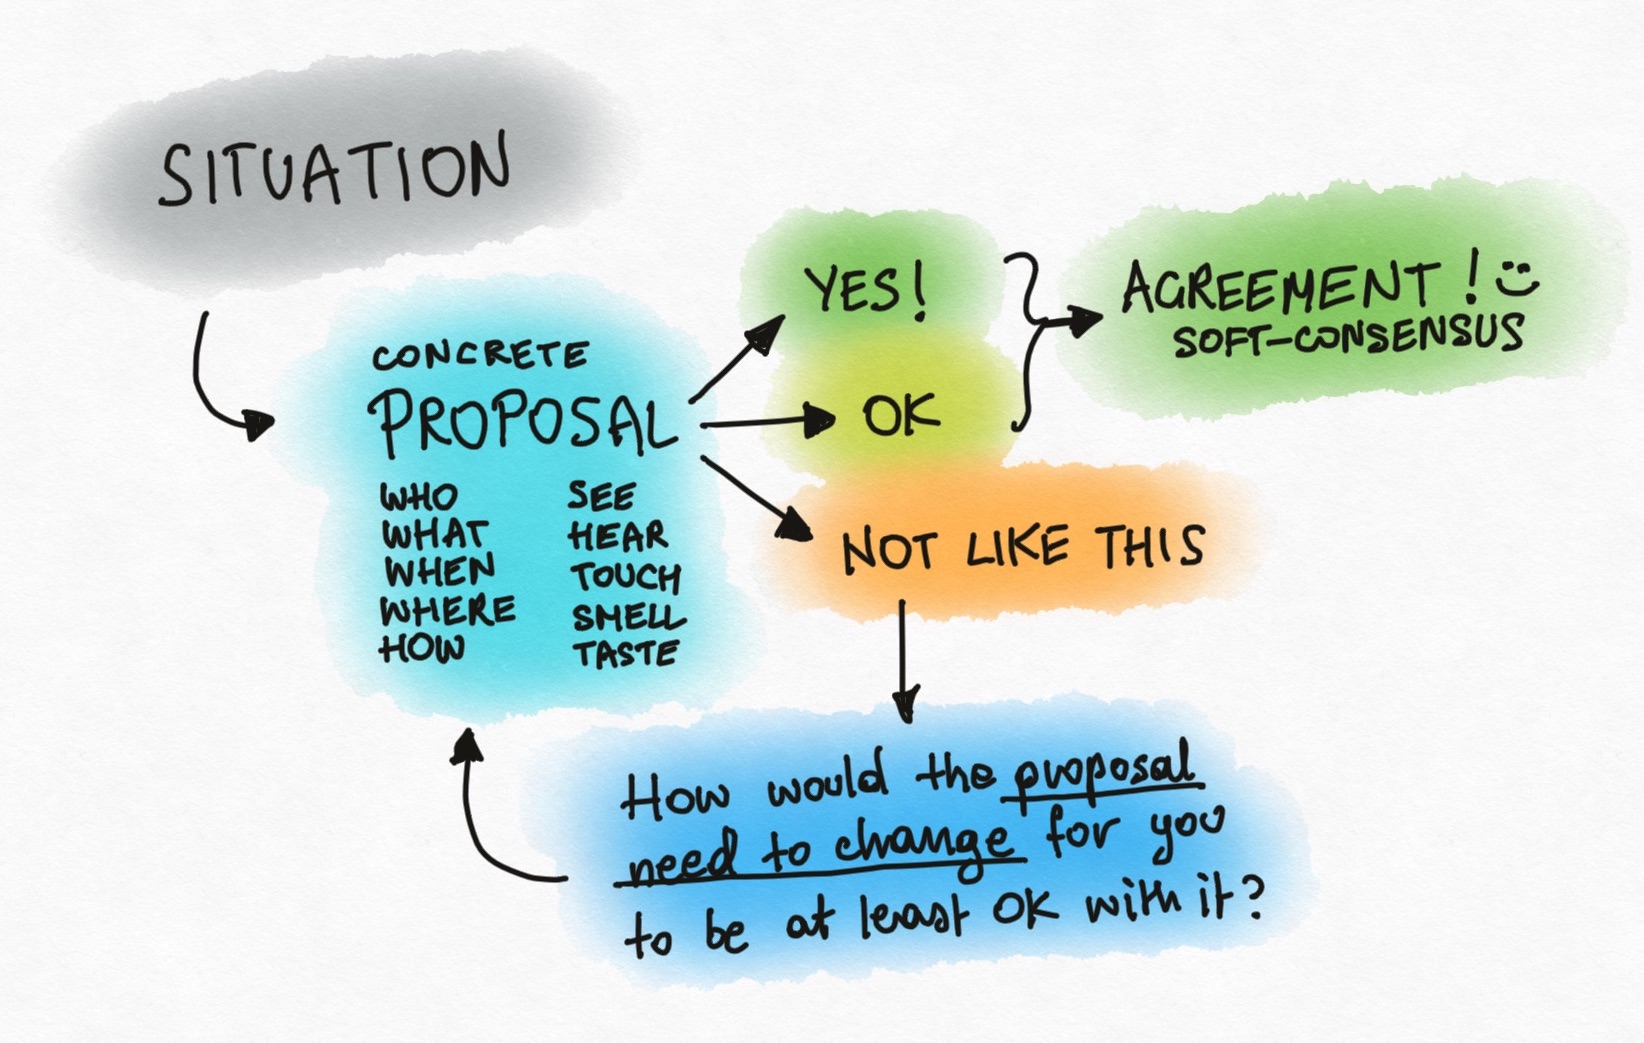 SITUATION
CONCRETE
PROPOSAL
WHO
WHAT
WHEN
WHERE
HOW
SEE
HEAR
TOUCH
SMELL
TASTE
YES!
OK
NOT LIKE THIS
AGREEMENT!
SOFT-CONSENSUS
How would the proposal
need to change for you
to be at least OK with it?